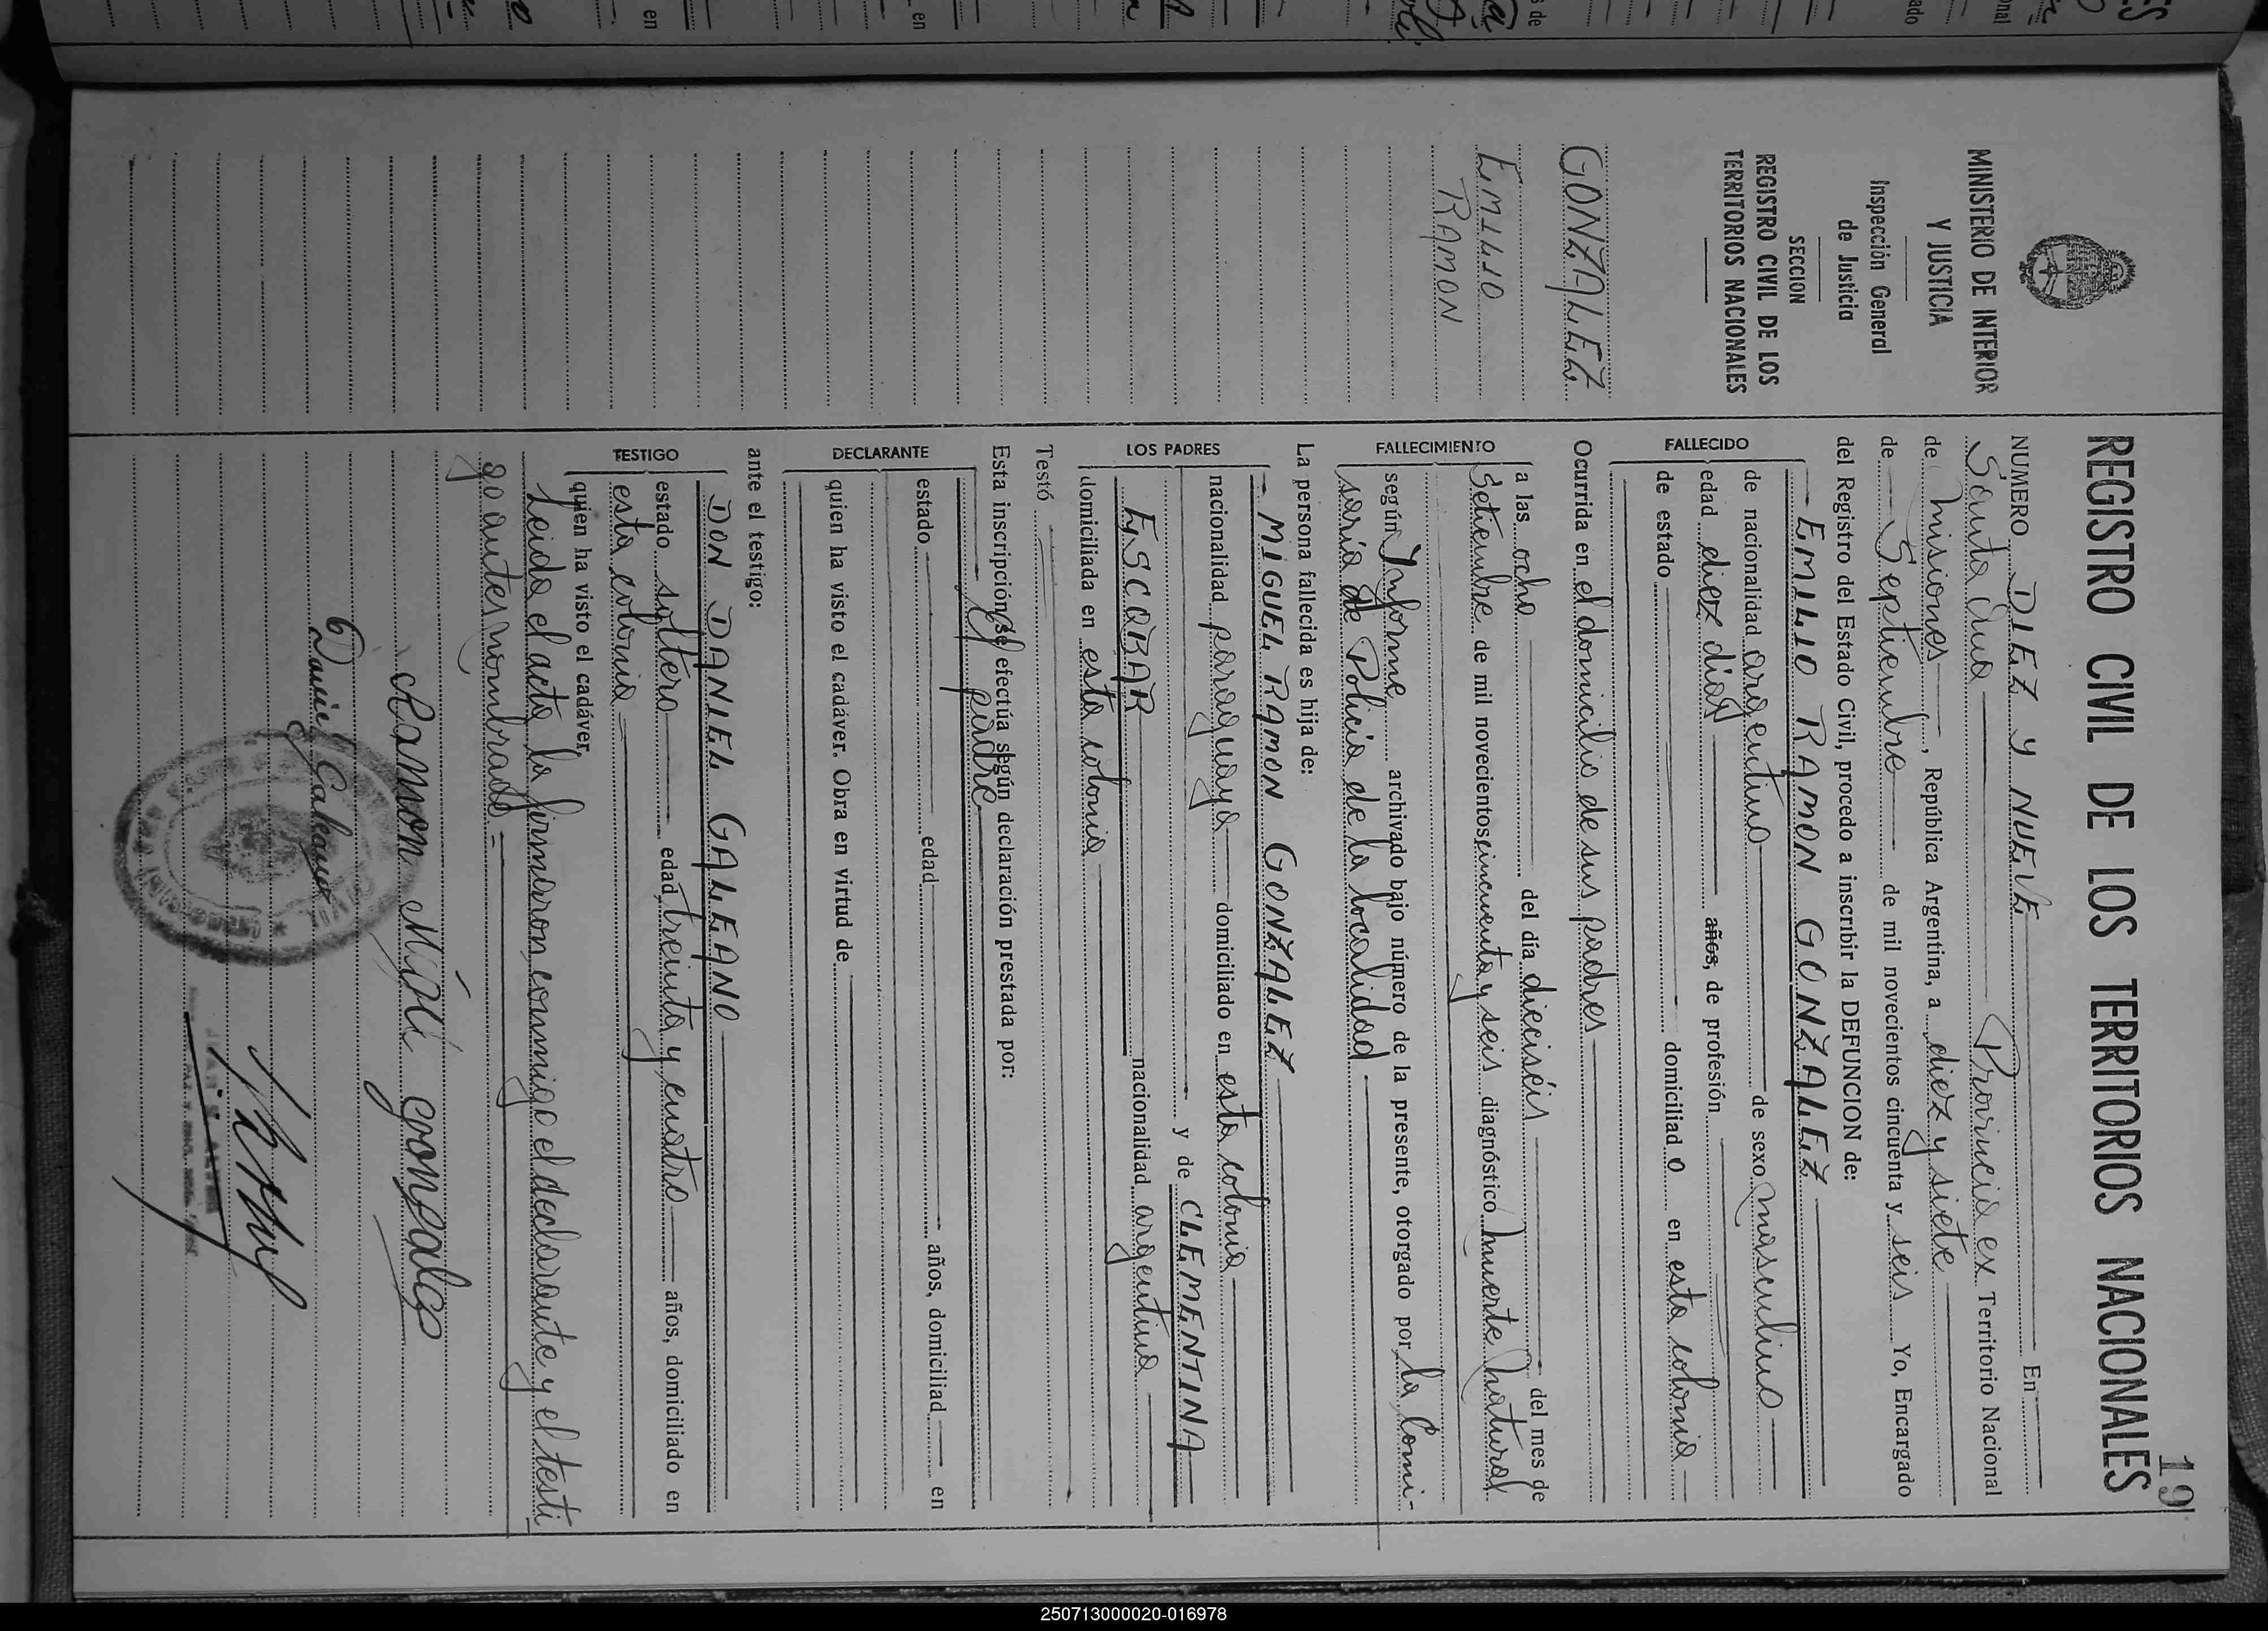 19
REGISTRO CIVIL DE LOS TERRITORIOS NACIONALES
MINISTERIO DE INTERIOR
Y JUSTICIA
Inspección General
de Justicia
SECCION
REGISTRO CIVIL DE LOS
TERRITORIOS NACIONALES
GONZALEZ
EMILIO
RAMON
NUMERO DIEZ Y NUEVE En
Santa Ana Provincia ex Territorio Nacional
de Misiones, República Argentina, a diez y siete
de Septiembre de mil novecientos cincuenta y seis Yo, Encargado
del Registro del Estado Civil, procedo a inscribir la DEFUNCION de:
FALLECIDO
EMILIO RAMON GONZALEZ
de nacionalidad argentino de sexo masculino
edad diez días años, de profesión
de estado domiciliado en esta colonia
Ocurrida en el domicilio de sus padres
FALLECIMIENTO
a las ocho del día dieciséis del mes de
Setiembre de mil novecientos cincuenta y seis diagnóstico muerte natural
según Informe archivado bajo número de la presente, otorgado por la Comi-
saría de Policía de la localidad
La persona fallecida es hija de:
LOS PADRES
MIGUEL RAMON GONZALEZ
nacionalidad paraguaya domiciliado en esta colonia
y de CLEMENTINA
ESCOBAR nacionalidad argentina
domiciliada en esta colonia
Testó
Esta inscripción se efectúa según declaración prestada por:
DECLARANTE
El padre
estado edad años, domiciliad en
quien ha visto el cadáver. Obra en virtud de
ante el testigo:
TESTIGO
DON DANIEL GALEANO
estado soltero edad, treinta y cuatro años, domiciliado en
esta colonia
quien ha visto el cadáver,
Leida el acta la firmaron conmigo el declarante y el testi
go antes nombrado =
Ramon Migel gonzalez
Daniel Galeano
250713000020-016978